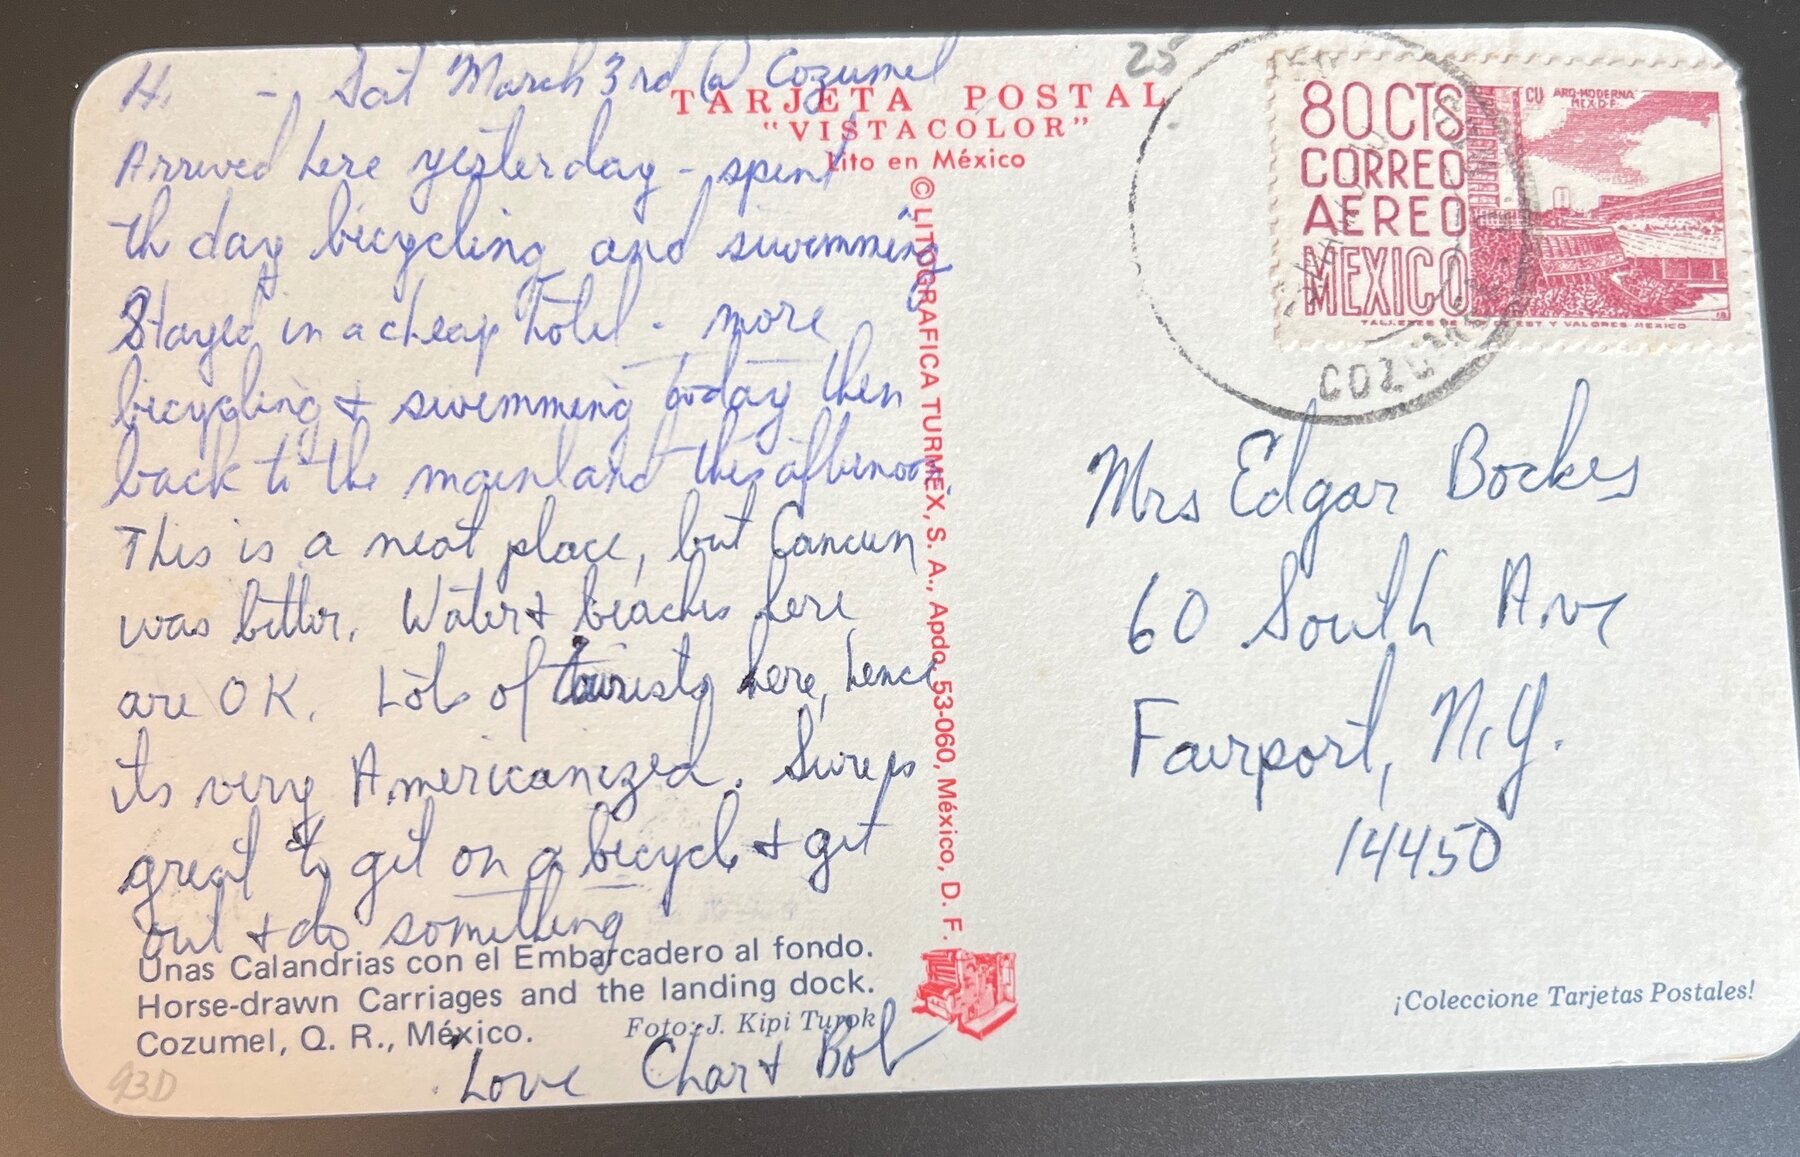 Hi - Sat March 3rd @ Cozumel
Arrived here yesterday - spent
th day bicycling and swimming
Stayed in a cheap hotel - more
bicycling & swimming today then
back to the mainland this afternoon.
This is a neat place, but Cancun
was better. Water & beaches here
are OK. Lots of tourists here, hence
its very Americanized. Sure is
great to get on a bicycle & get
out & do something
Love Char & Bob
Unas Calandrias con el Embarcadero al fondo.
Horse-drawn Carriages and the landing dock.
Cozumel, Q. R., México.
Foto: J. Kipi Turok
93D
TARJETA POSTAL
"VISTACOLOR"
Lito en México
© LITOGRAFICA TURMEX, S. A., Apdo. 53-060, México, D. F.
25
80 CTS
CORREO
AEREO
MEXICO
CU ARQ-MODERNA
MEX.D.F.
COZUMEL
Mrs Edgar Bockes
60 South Ave
Fairport, N.Y.
14450
¡Coleccione Tarjetas Postales!